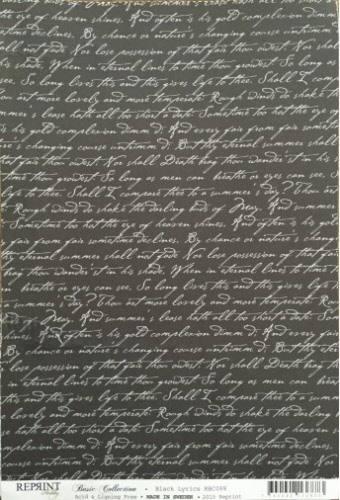 the eye of heaven shines, And often is his gold complexion dimm
sometime declines. By chance or nature's changing course untrimm d:
all not fade Nor lose possession of that fair thou owest. Nor shall
his shade. When in eternal lines to time thou growest. So long as
see. So long lives this and this gives life to thee. Shall I com
ou art more lovely and more temperate Rough winds do shake the
mmer s lease hath all too short a date: Sometime too hot the eye of
is his gold complexion dimm d: And every fair from fair sometim
ture s changing course untrimm d: But thy eternal summer shall
that fair thou owest. Nor shall Death brag thou wander'st in his s
growest. So long as men can breathe or eyes can see. S
life to thee. Shall I compare thee to a summer s day? Thou art
Rough winds do shake the darling buds of May, And summer
Sometime too hot the eye of heaven shines. And often is his g
fair from fair sometime declines. By chance or nature s chang
y eternal summer shall not fade Nor lose possession of that fair
rag thou wander'st in his shade. When in eternal lines to time t
breathe or eyes can see. So long lives this and this gives life to
a summer s day? Thou art more lovely and more temperate: Rou
f May. And summer's lease hath all too short a date: Some
shines. And often is his gold complexion dimm d: And every fair
By chance or nature s changing course untrimm d: But thy e
lose possession of that fair thou owest. Nor shall Death brag tho
in eternal lines to time thou growest: So long as men can brea
this and this gives life to thee. Shall I compare thee to a summer
e lovely and more temperate: Rough winds do shake the darling
er s lease hath all too short a date: Sometime too hot the eye
is gold complexion dimm d: And every fair from fair sometime
REPRINT Basic Collection • Black Lyrics RBC088
Acid & Ligning Free • MADE IN SWEDEN • 2015 Reprint